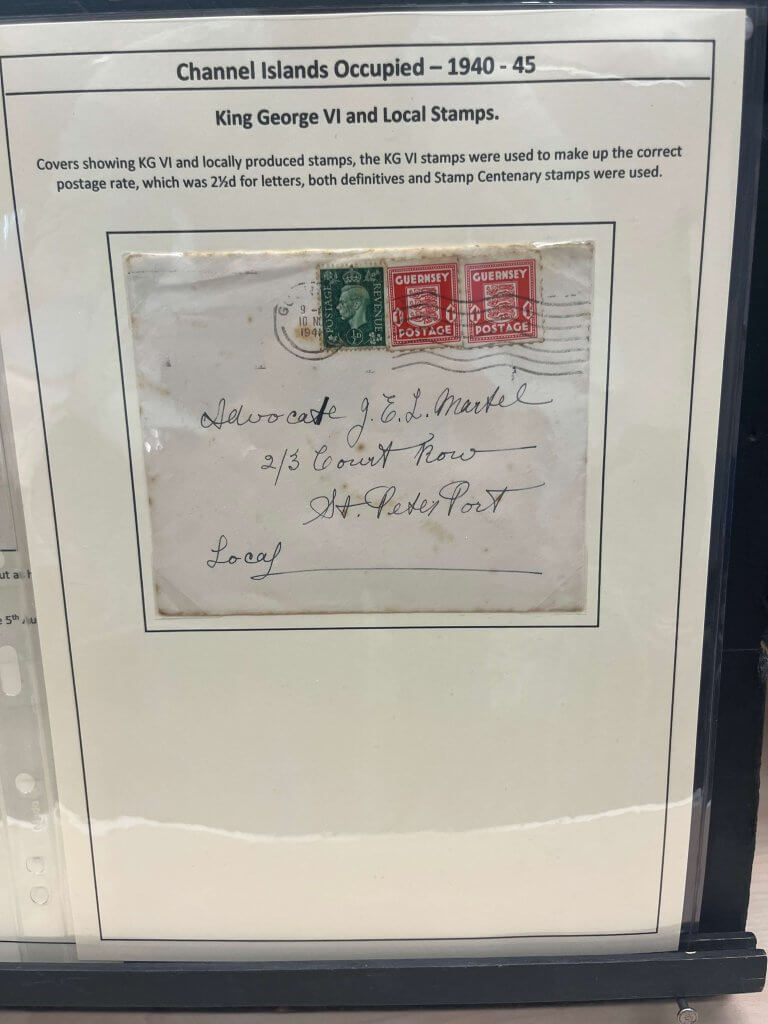 Channel Islands Occupied – 1940 - 45
King George VI and Local Stamps.
Covers showing KG VI and locally produced stamps, the KG VI stamps were used to make up the correct
postage rate, which was 2½d for letters, both definitives and Stamp Centenary stamps were used.
9 -
10 NO
194
POSTAGE REVENUE
½D
GUERNSEY
1D 1D
POSTAGE
GUERNSEY
1D 1D
POSTAGE
Advocate J. E. L. Martel
2/3 Court Row
St. Peter Port
Local
5th